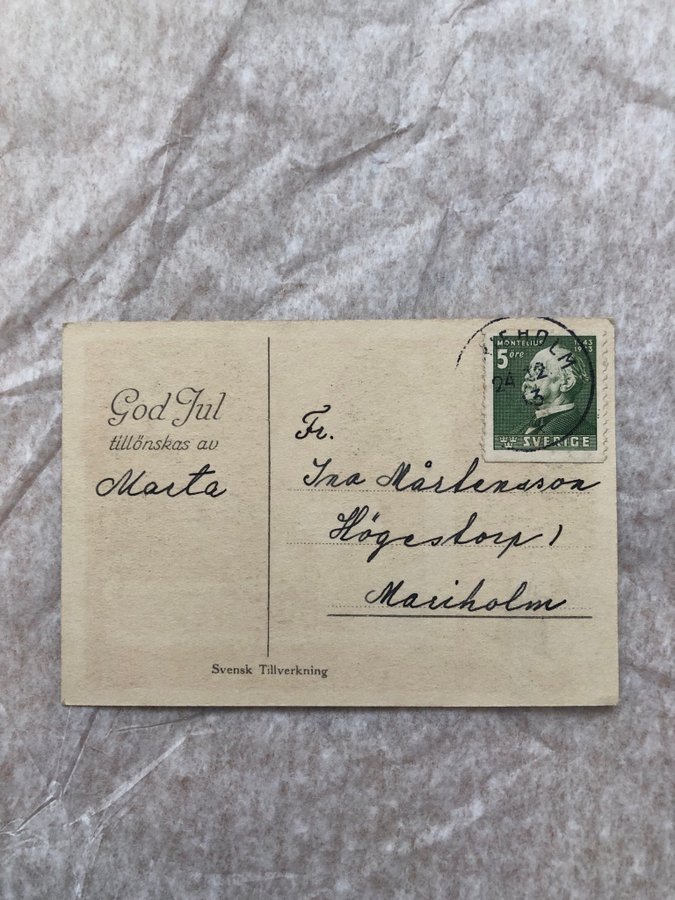 God Jul
tillönskas av
Marta
Svensk Tillverkning
MONTELIUS
1843
1943
5 öre
SVERIGE
HOLM
24 12
3
Fr.
Ina Mårtensson
Högestorp 1
Mariholm